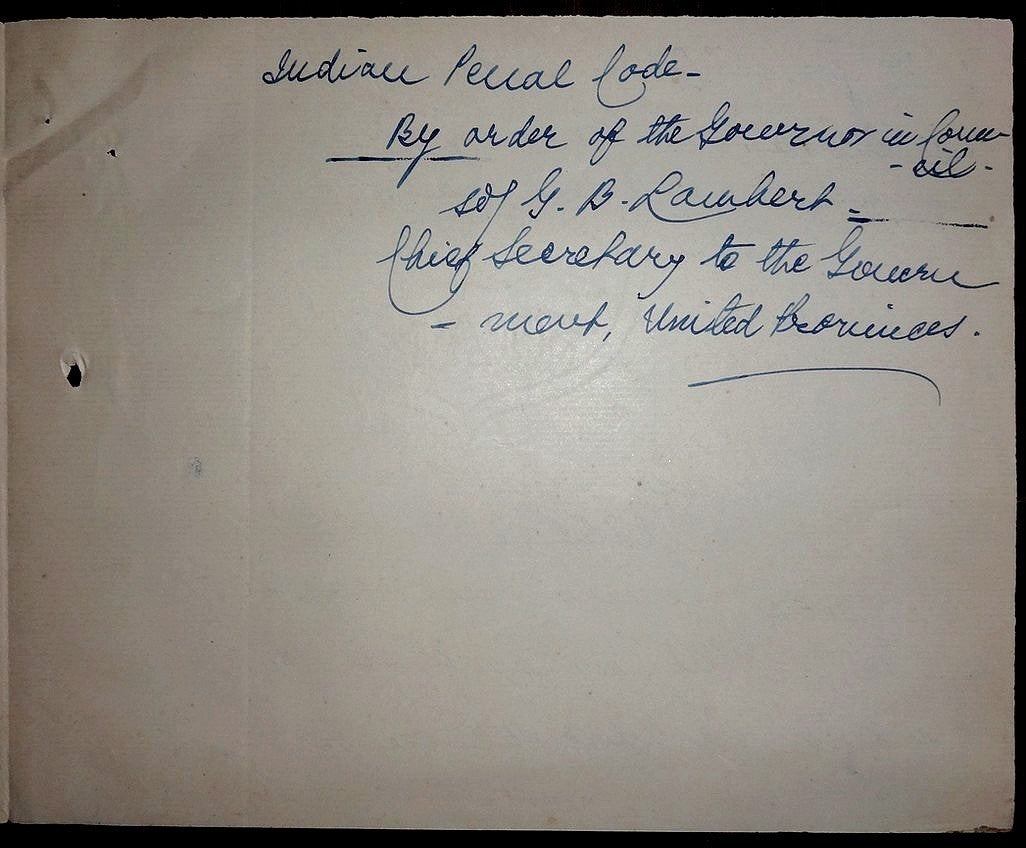 Indian Penal Code-
By order of the Governor in Coun-
-cil-
sd/ G. B. Lambert -
Chief Secretary to the Govern
- ment, United Provinces.